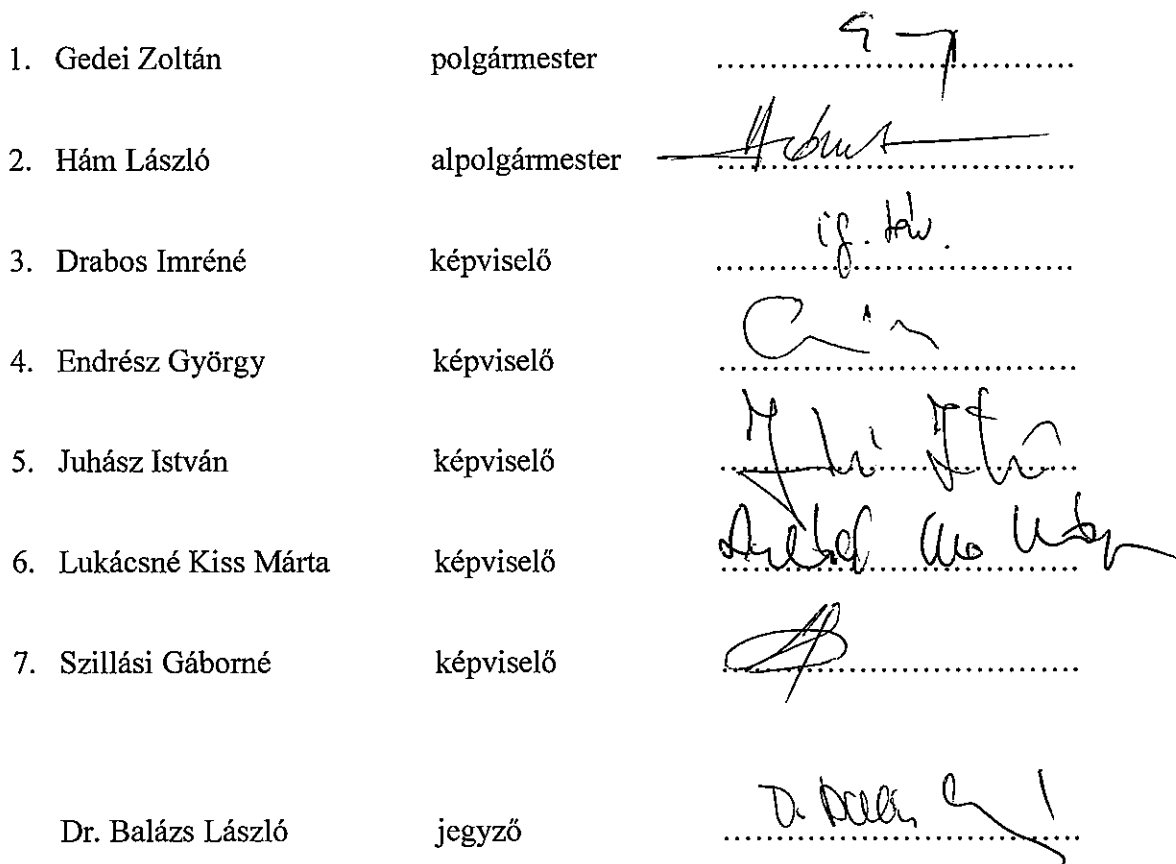 1. Gedei Zoltán polgármester
2. Hám László alpolgármester
3. Drabos Imréné képviselő ig. táv.
4. Endrész György képviselő
5. Juhász István képviselő
6. Lukácsné Kiss Márta képviselő
7. Szillási Gáborné képviselő
Dr. Balázs László jegyző